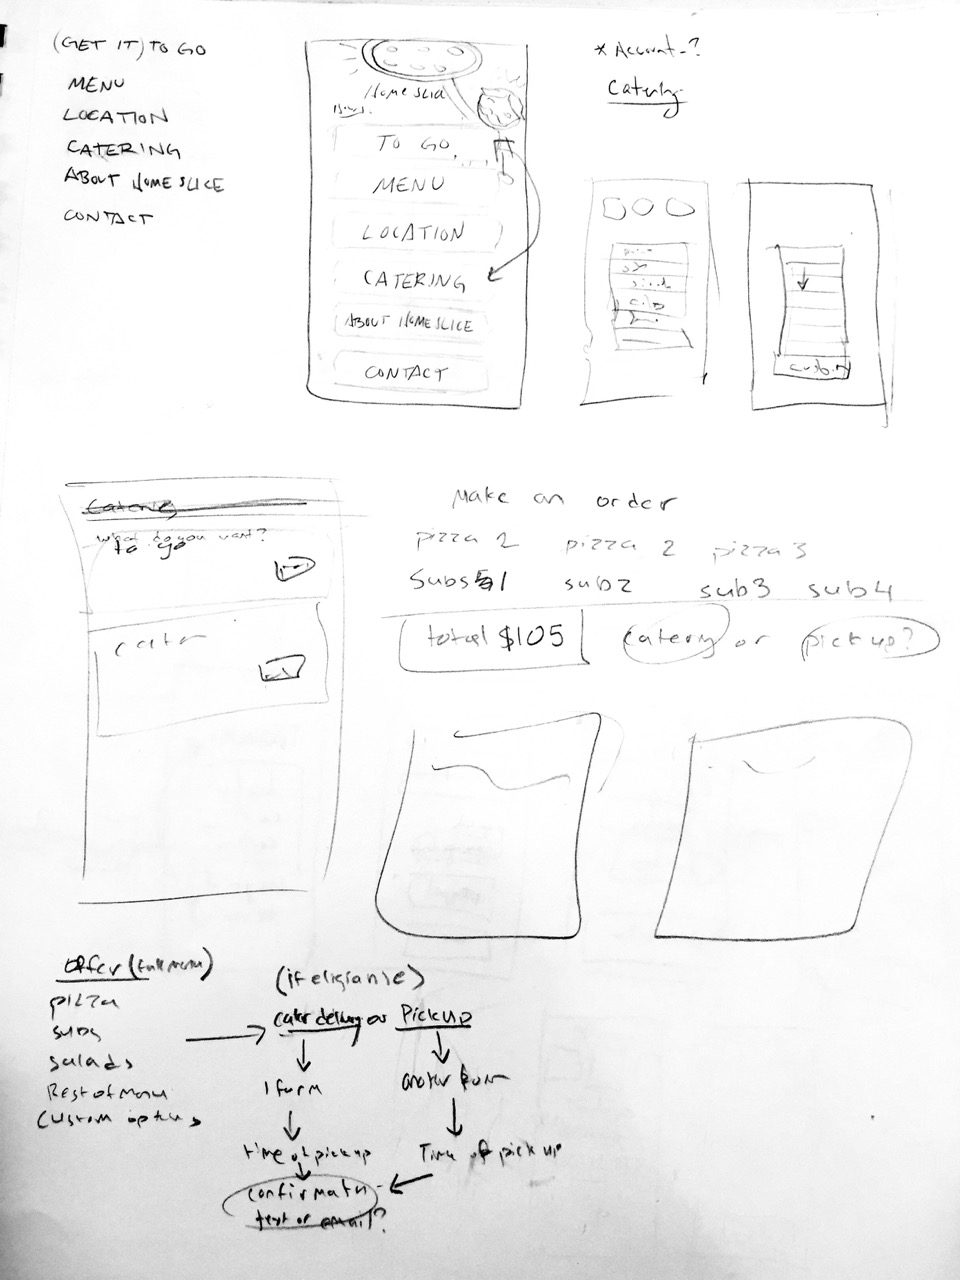 (GET IT) TO GO
MENU
LOCATION
CATERING
ABOUT HOMESLICE
CONTACT
HomeSlic
TO GO
MENU
LOCATION
CATERING
ABOUT HOMESLICE
CONTACT
* Account - ?
Catering
Catering
What do you want?
to go
Cater
Make an order
pizza 2 pizza 2 pizza 3
Subs 1 sub2 sub3 sub4
total $105 catery or pick up?
Offer (full menu)
pizza
subs
salads
Rest of menu
Custom options
(if eligible)
cater delivery or Pickup
1 form another form
time of pickup Time of pick up
confirmatn
text or email?